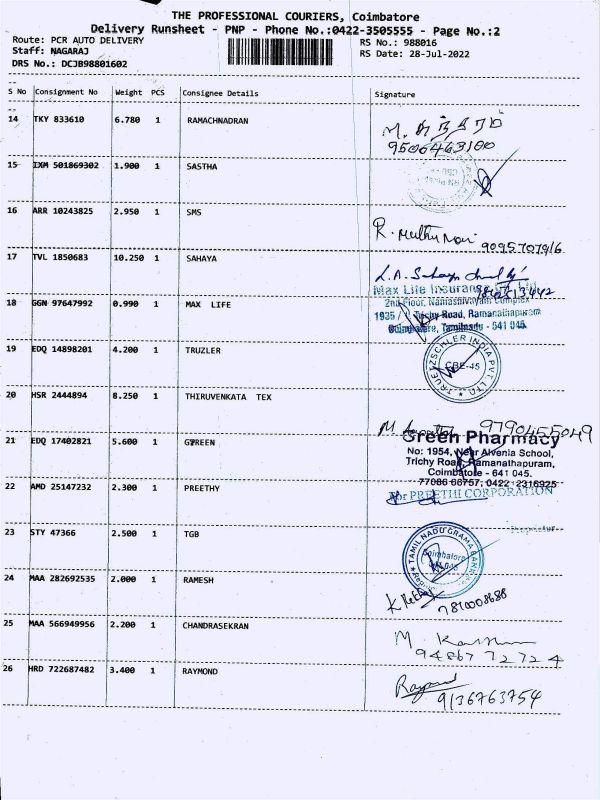 THE PROFESSIONAL COURIERS, Coimbatore
Delivery Runsheet - PNP - Phone No.:0422-3505555 - Page No.:2
Route: PCR AUTO DELIVERY
RS No.: 988016
Staff: NAGARAJ
RS Date: 28-Jul-2022
DRS No.: DCJB98801602
S No Consignment No Weight PCS Consignee Details Signature
14 TKY 833610 6.780 1 RAMACHNADRAN
M. சுந்தரம்
9500463100
15 IXM 501869302 1.900 1 SASTHA
16 ARR 10243825 2.950 1 SMS
R.
9095707916
17 TVL 1850683 10.250 1 SAHAYA
L.A. Sahaya
Max Life Insurance
2nd Floor, Namashivayam Complex
18 GGN 97647992 0.990 1 MAX LIFE
1935 Trichy Road, Ramanathapuram
Coimbatore, Tamilnadu - 641 045.
19 EDQ 14898201 4.200 1 TRUZLER
TRUETZSCHLER INDIA PVT. LTD.
CBE-45
20 HSR 2444894 8.250 1 THIRUVENKATA TEX
M. 9790455049
21 EDQ 17402821 5.600 1 GREEN
Green Pharmacy
No: 1954, Near Alvenia School,
Trichy Road, Ramanathapuram,
Coimbatore - 641 045.
77086 66757, 0422 2316925
22 AMD 25147232 2.300 1 PREETHY
For PREETHI CORPORATION
Proprietor
23 STY 47366 2.500 1 TGB
TAMIL NADU GRAMA BANK
Coimbatore
24 MAA 282692535 2.000 1 RAMESH
7810008688
25 MAA 566949956 2.200 1 CHANDRASEKRAN
M
94867 72724
26 HRD 722687482 3.400 1 RAYMOND
Raymond
9136763754